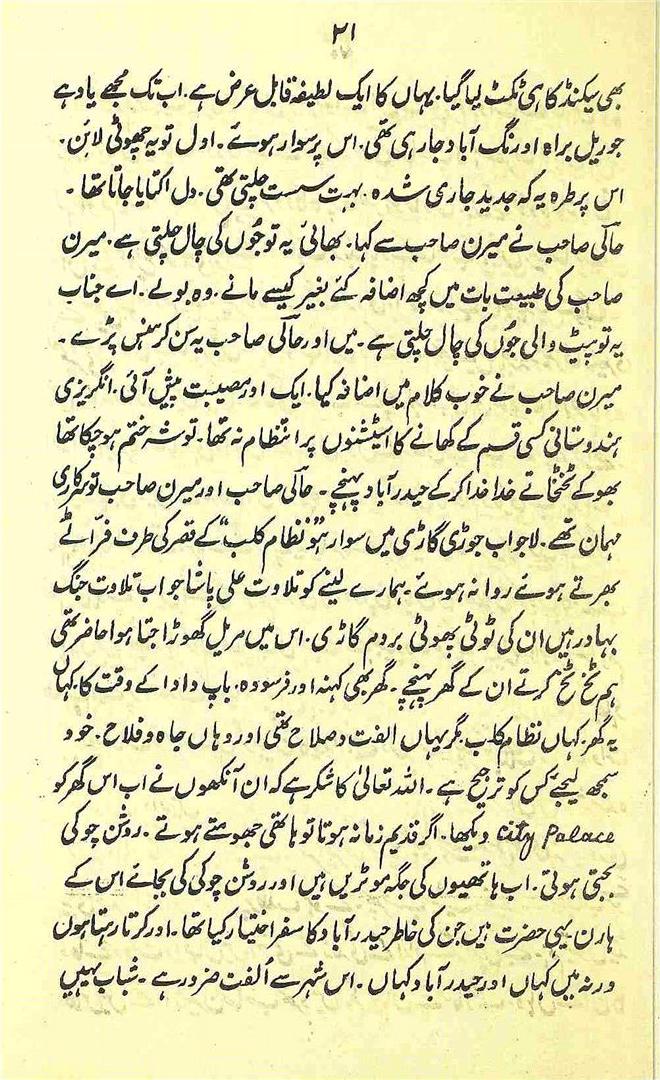 ۲۱
بھی سیکنڈ کا ہی ٹکٹ لیا گیا. یہاں کا ایک لطیفہ قابل عرض ہے. اب تک مجھے یاد ہے
جو ریل براہ اورنگ آباد جا رہی تھی. اس پر سوار ہوئے. اول تو یہ چھوٹی لائن.
اس پر طرہ یہ کہ جدید جاری شدہ. بہت سست چلتی تھی. دل اکتایا جاتا تھا.
حالی صاحب نے میرن صاحب سے کہا. بھائی یہ تو جُوں کی چال چلتی ہے. میرن
صاحب کی طبیعت بات میں کچھ اضافہ کئے بغیر کیسے مانے. وہ بولے. اے جناب
یہ تو پیٹ والی جُوں کی چال چلتی ہے. میں اور حالی صاحب یہ سن کر ہنس پڑے.
میرن صاحب نے خوب کلام میں اضافہ کیا. ایک اور مصیبت پیش آئی. انگریزی
ہندوستانی کسی قسم کے کھانے کا اسٹیشنوں پر انتظام نہ تھا. توشہ ختم ہو چکا تھا
بھوکے ٹخٹخاتے خدا خدا کر کے حیدرآباد پہنچے. حالی صاحب اور میرن صاحب تو سرکاری
مہمان تھے. لاجواب جوڑی گاڑی میں سوار ہو "نظام کلب" کے قصر کی طرف فرّاٹے
بھرتے ہوئے روانہ ہوئے. ہمارے لینے کو تلاوت علی پاشا جو اب تلاوت جنگ
بہادر ہیں ان کی ٹوٹی پھوٹی بروم گاڑی. اس میں مریل گھوڑا جتا ہوا حاضر تھی
ہم ٹخ ٹخ کرتے ان کے گھر پہنچے. گھر بھی کہنہ اور فرسودہ. باپ دادا کے وقت کا. کہاں
یہ گھر. کہاں نظام کلب. مگر یہاں الفت و صلاح تھی اور وہاں جاہ و فلاح. خود
سمجھ لیجئے کس کو ترجیح ہے. اللہ تعالیٰ کا شکر ہے کہ ان آنکھوں نے اب اس گھر کو
City Palace دیکھا. اگر قدیم زمانہ ہوتا تو ہاتھی جھومتے ہوتے. روشن چوکی
بجتی ہوتی. اب ہاتھیوں کی جگہ موٹریں ہیں اور روشن چوکی کی بجائے اس کے
ہارن. یہی حضرت ہیں جن کی خاطر حیدرآباد کا سفر اختیار کیا تھا. اور کرتا رہتا ہوں
ورنہ میں کہاں اور حیدرآباد کہاں. اس شہر سے اُلفت ضرور ہے. شباب یہیں